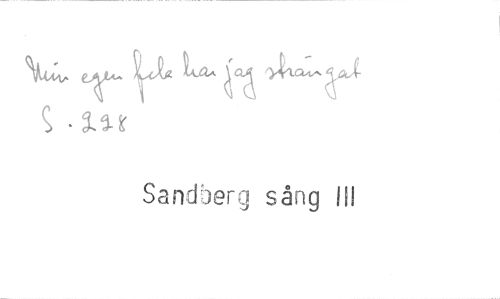 Min egen fela har jag strängat
S. 228
Sandberg sång III